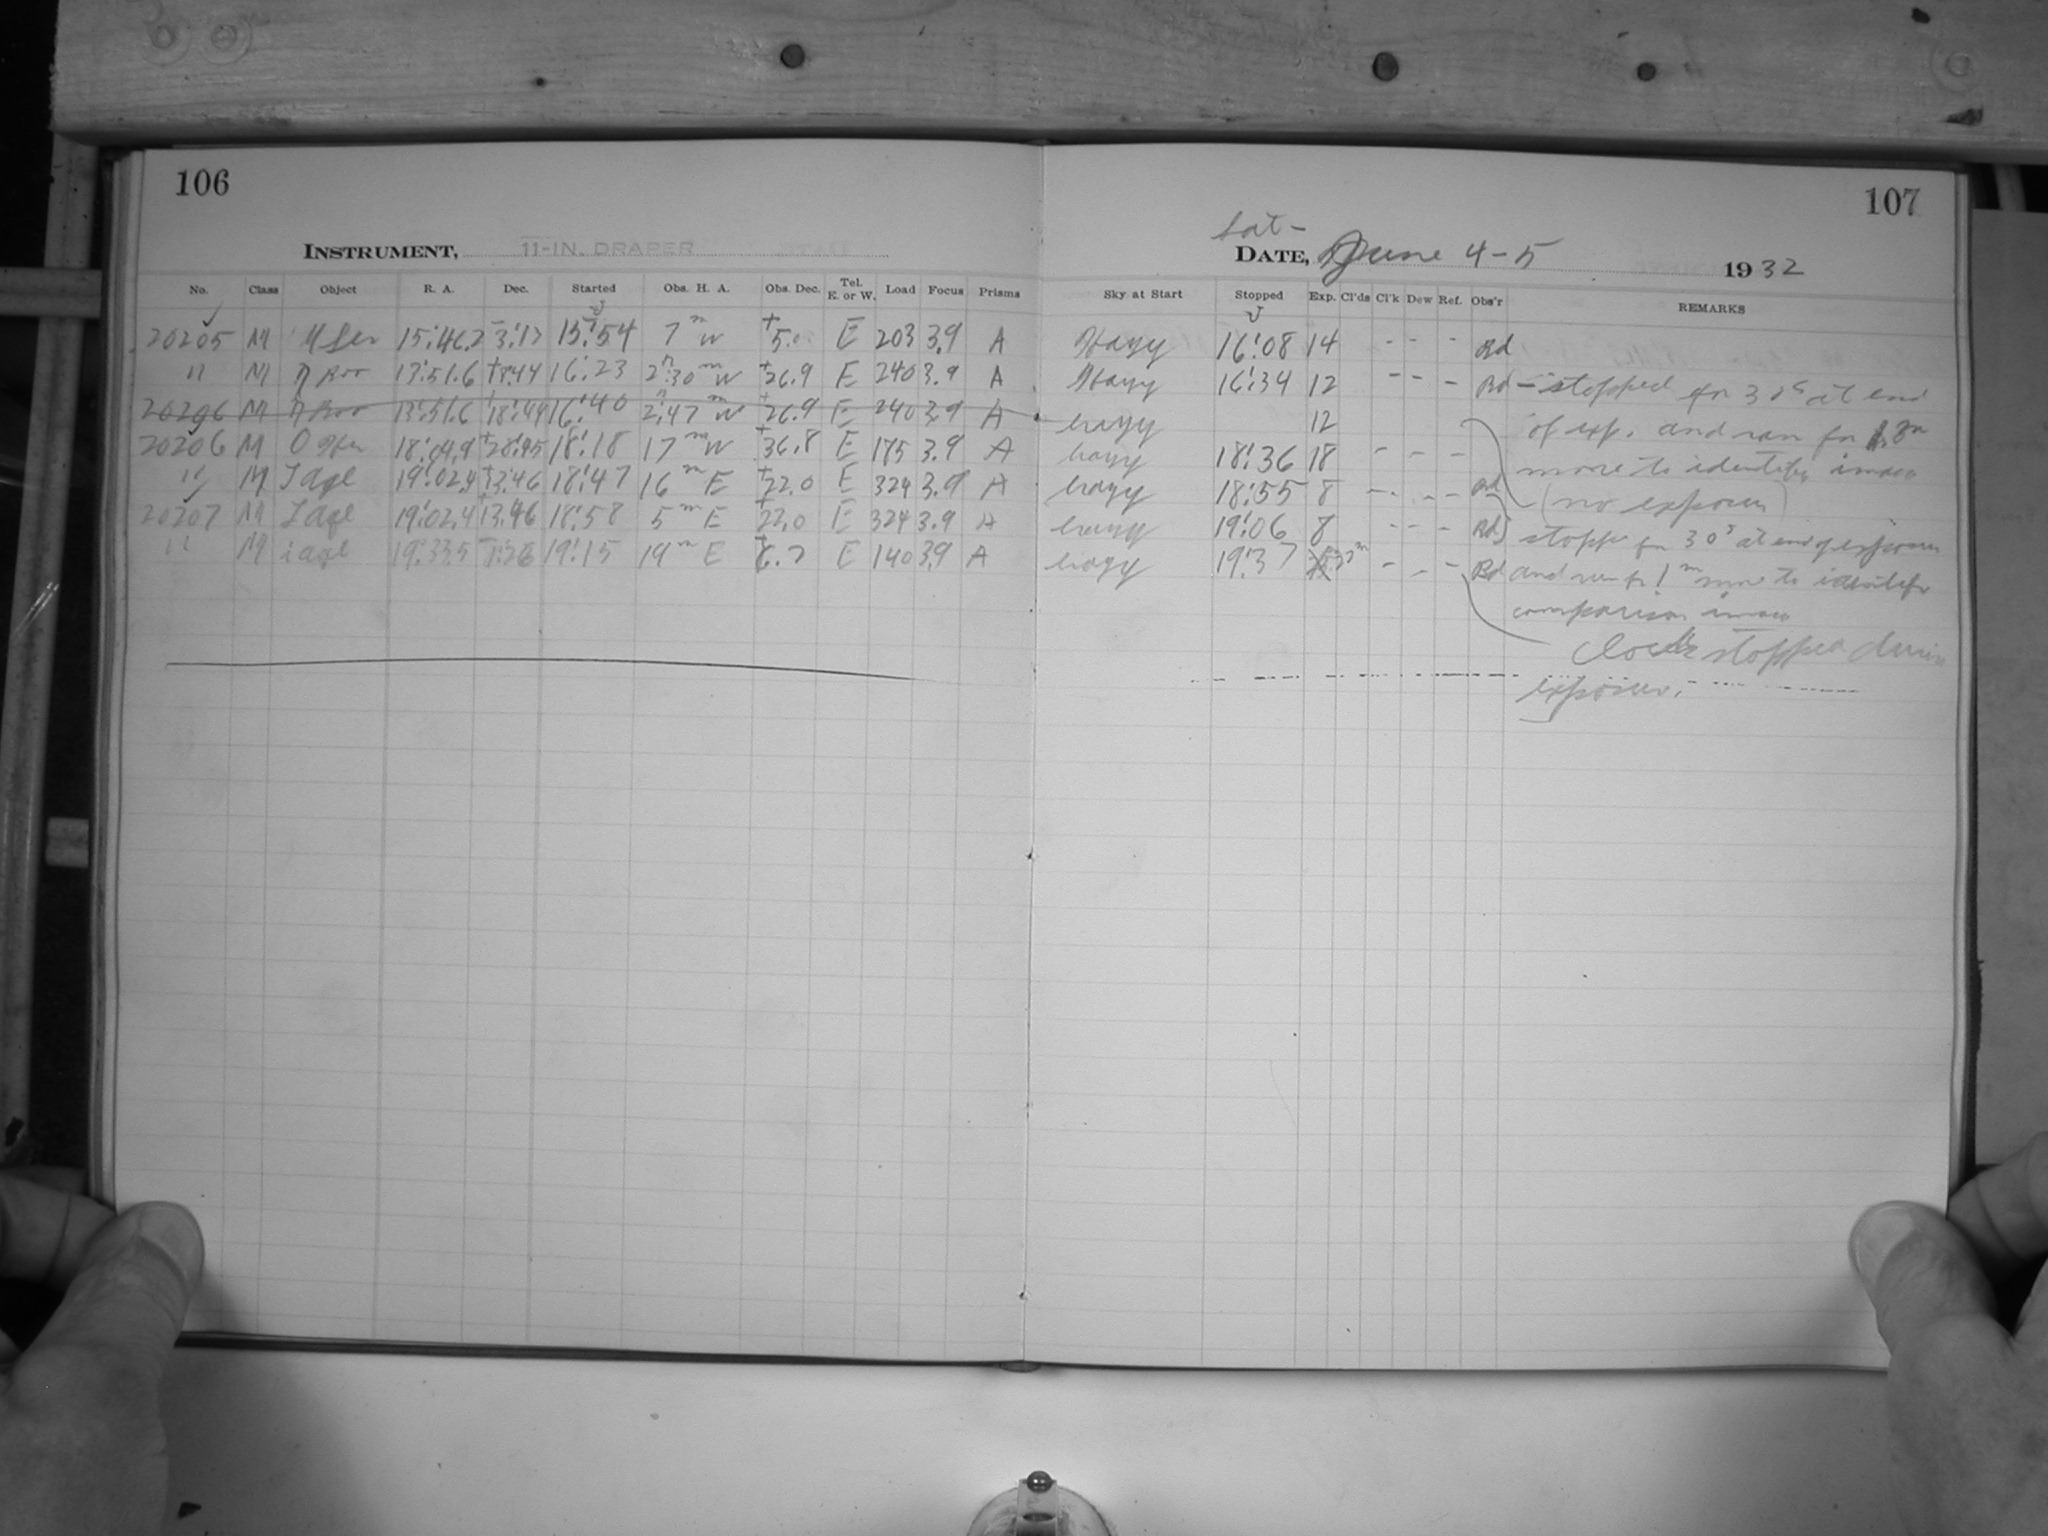 106
107
INSTRUMENT, 11-IN. DRAPER
Sat-
DATE, June 4-5 1932
No. Class Object R. A. Dec. Started Obs. H. A. Obs. Dec. Tel. E. or W. Load Focus Prisms Sky at Start Stopped Exp. Cl'ds Cl'k Dew Ref. Obs'r REMARKS
20205 M μ Ser 15:46.2 -3:12 15:54 7m W +5.0 E 203 3.9 A Hazy 16:08 14 - - - Rd
" M η Boo 13:51.6 +18:44 16:23 2h30m W +26.9 E 240 3.9 A Hazy 16:34 12 - - - Rd - stopped for 30s at end
20206 M η Boo 13:51.6 +18:44 16:40 2h47m W +26.9 E 240 3.9 A hazy 12 of exp. and ran for
20206 M O Her 18:04.9 +28:45 18:18 17m W +36.8 E 175 3.9 A hazy 18:36 18 - - - more to identify
" M ζ aql 19:02.4 +13:46 18:47 16m E +22.0 E 324 3.9 A hazy 18:55 8 - - - Rd (no exposure)
20207 M ζ aql 19:02.4 13:46 18:58 5m E +22.0 E 324 3.9 A hazy 19:06 8 - - - Rd stopped for 30s at end of exposure
" M ι aql 19:33.5 -1:26 19:15 19m E +6.7 E 140 3.9 A hazy 19:37 - - - Rd and run for 1m more to identify
comparison
Clock stopped during
exposure.